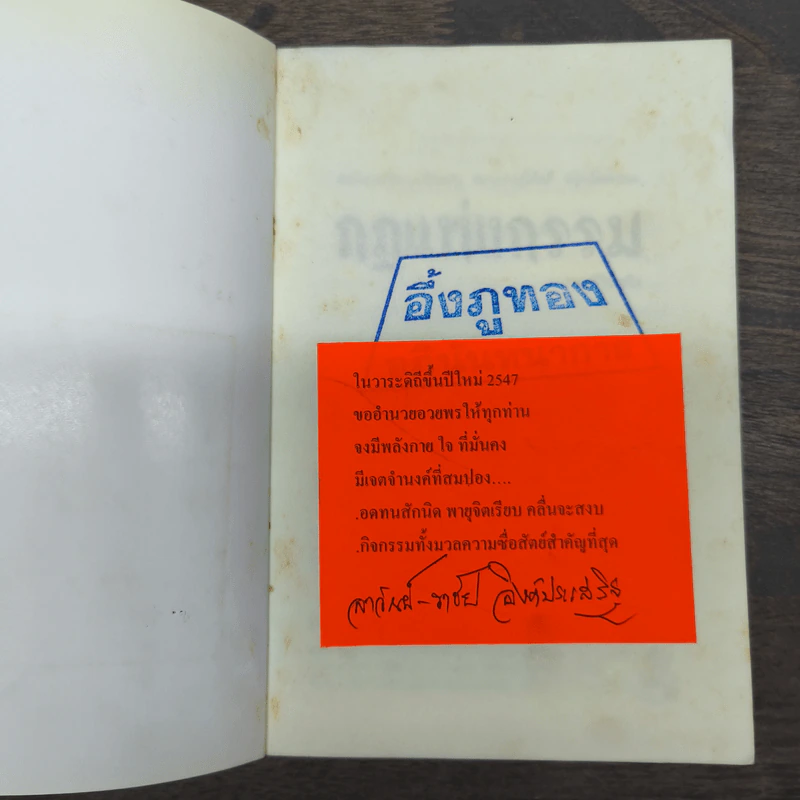 อึ้งภูทอง
ในวาระดิถีขึ้นปีใหม่ 2547
ขออำนวยอวยพรให้ทุกท่าน
จงมีพลังกาย ใจ ที่มั่นคง
มีเจตจำนงค์ที่สมปอง....
.อดทนสักนิด พายุจิตเรียบ คลื่นจะสงบ
.กิจกรรมทั้งมวลความซื่อสัตย์สำคัญที่สุด